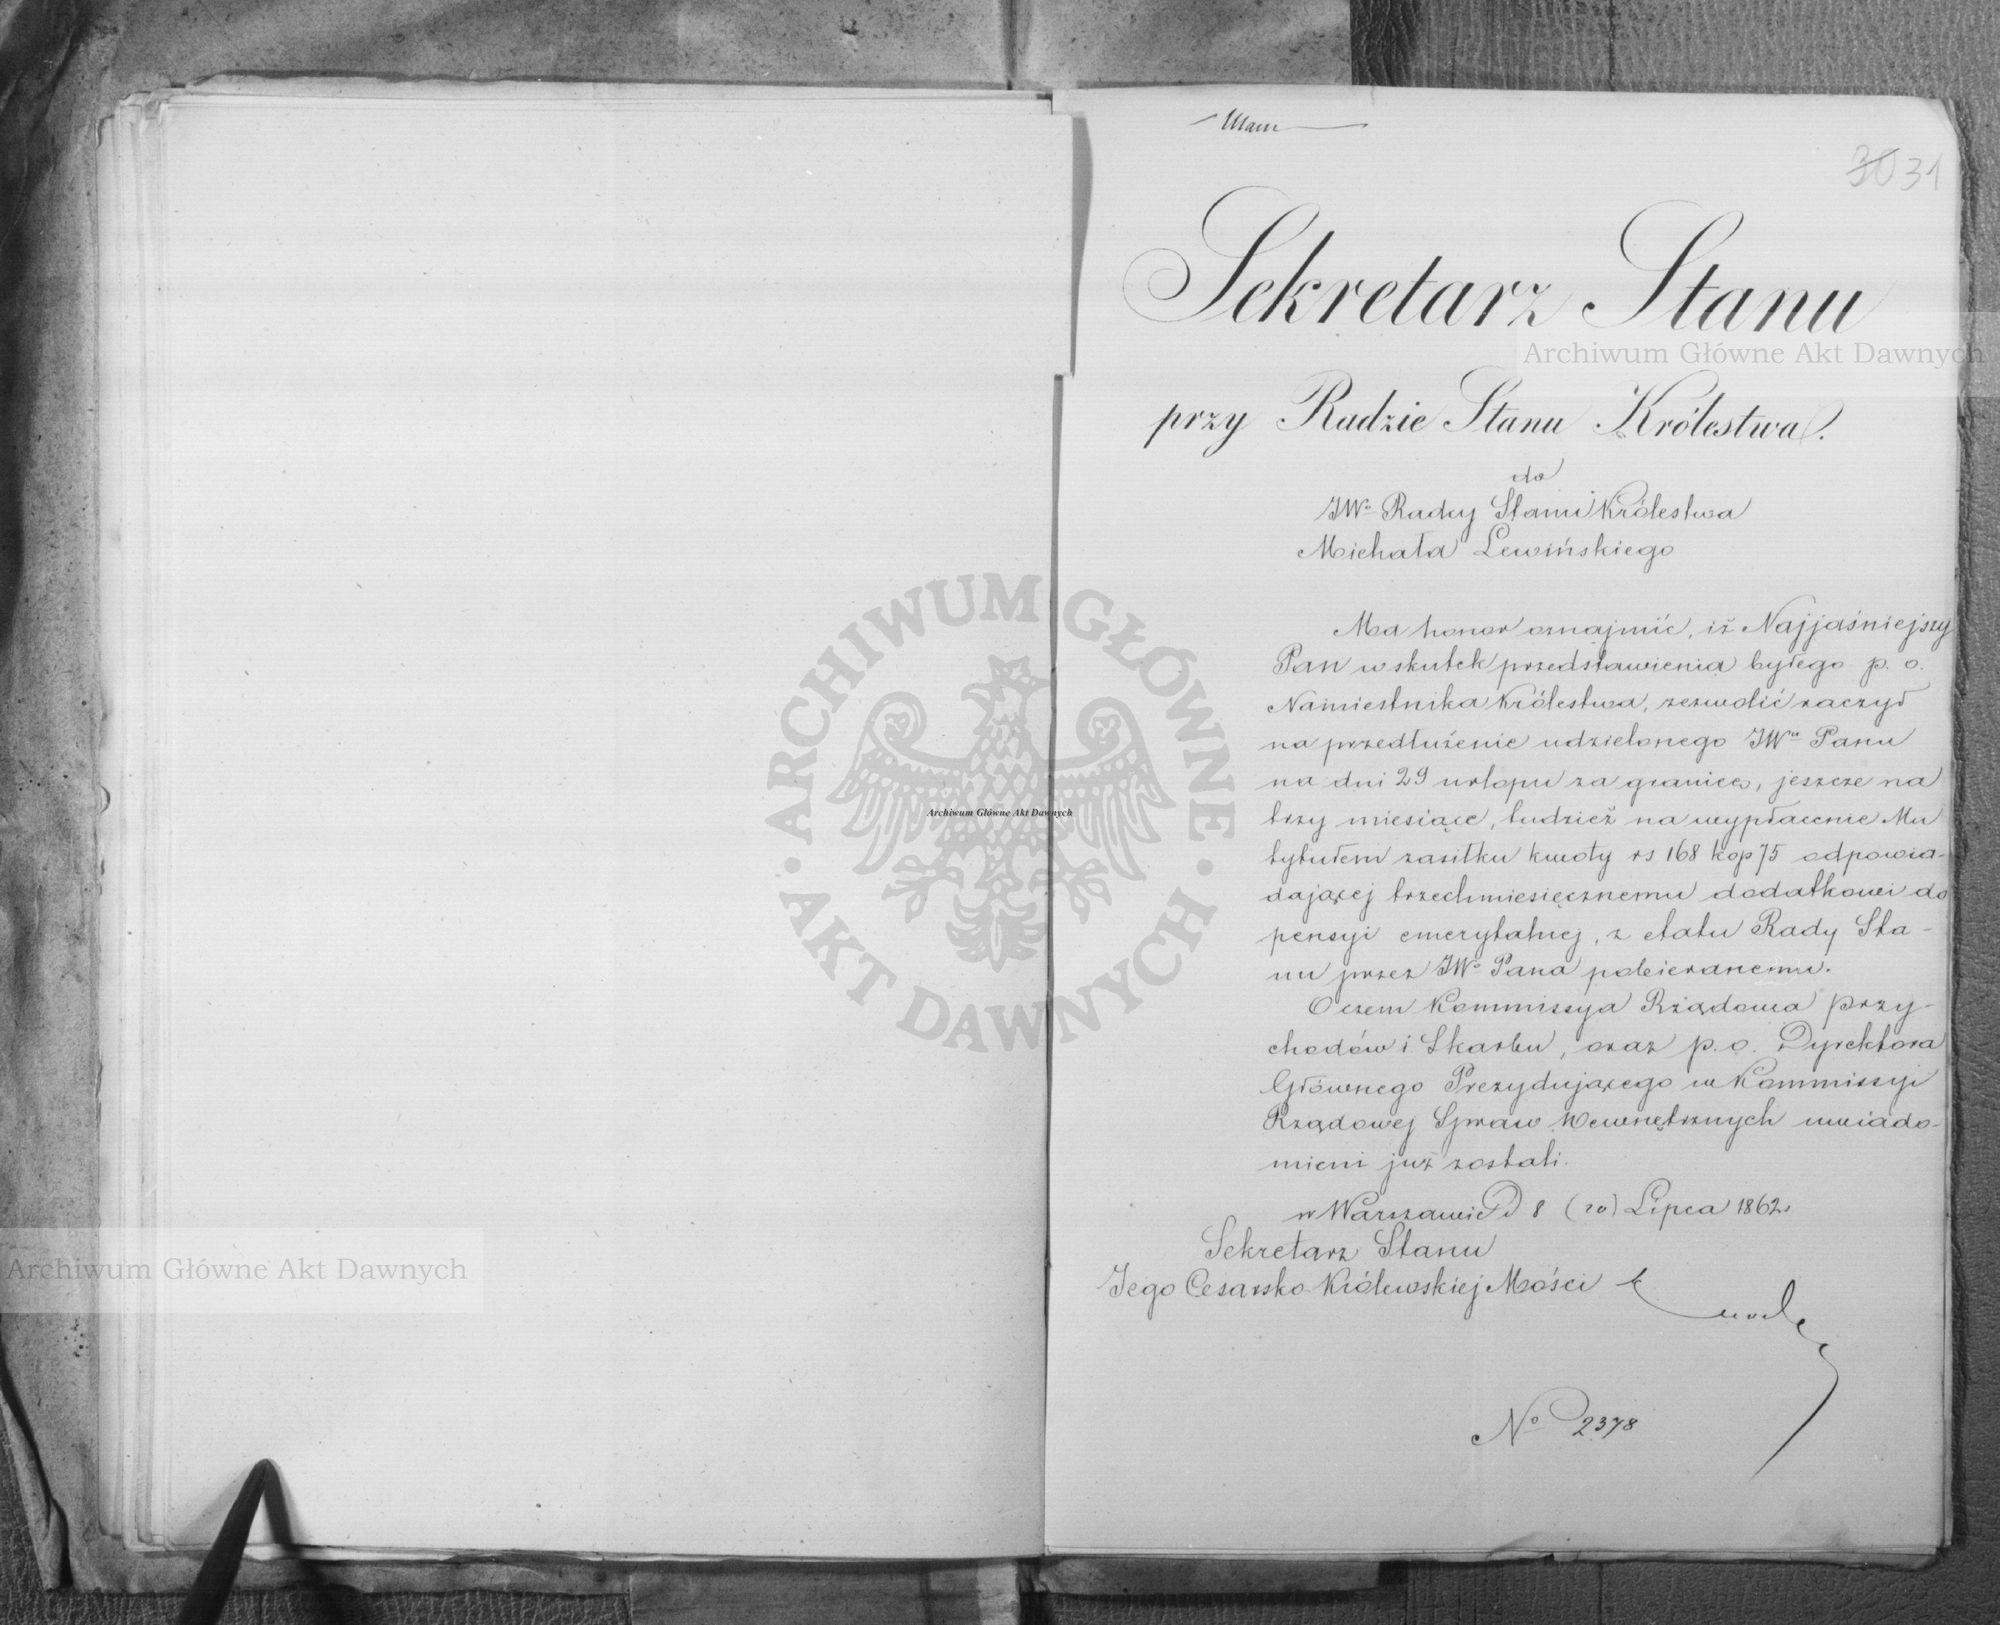 30 31
Sekretarz Stanu
przy Radzie Stanu Królestwa.
do
JWo Radcy Stanu Królestwa
Michała Lewińskiego
Ma honor oznajmić, iż Najjaśniejszy
Pan wskutek przedstawienia byłego p. o.
Namiestnika Królestwa, zezwolić raczył
na przedłużenie udzielonego JWu Panu
na dni 29 urlopu za granicę, jeszcze na
trzy miesiące, tudzież na wypłacenie Mu
tytułem zasiłku kwoty rs 168 kop 75 odpowia-
dającej trzechmiesięcznemu dodatkowi do
pensyi emerytalnej, z etatu Rady Sta-
nu przez JWo Pana pobieranemu.
O czem Kommissya Rządowa Przy-
chodów i Skarbu, oraz p. o. Dyrektora
Głównego Prezydującego w Kommissyi
Rządowej Spraw Wewnętrznych uwiado-
mieni już zostali.
w Warszawie D 8 (20) Lipca 1862
Sekretarz Stanu
Jego Cesarsko-Królewskiej Mości
No 2378
Archiwum Główne Akt Dawnych
Archiwum Główne Akt Dawnych
Archiwum Główne Akt Dawnych
ARCHIWUM GŁÓWNE · AKT DAWNYCH ·